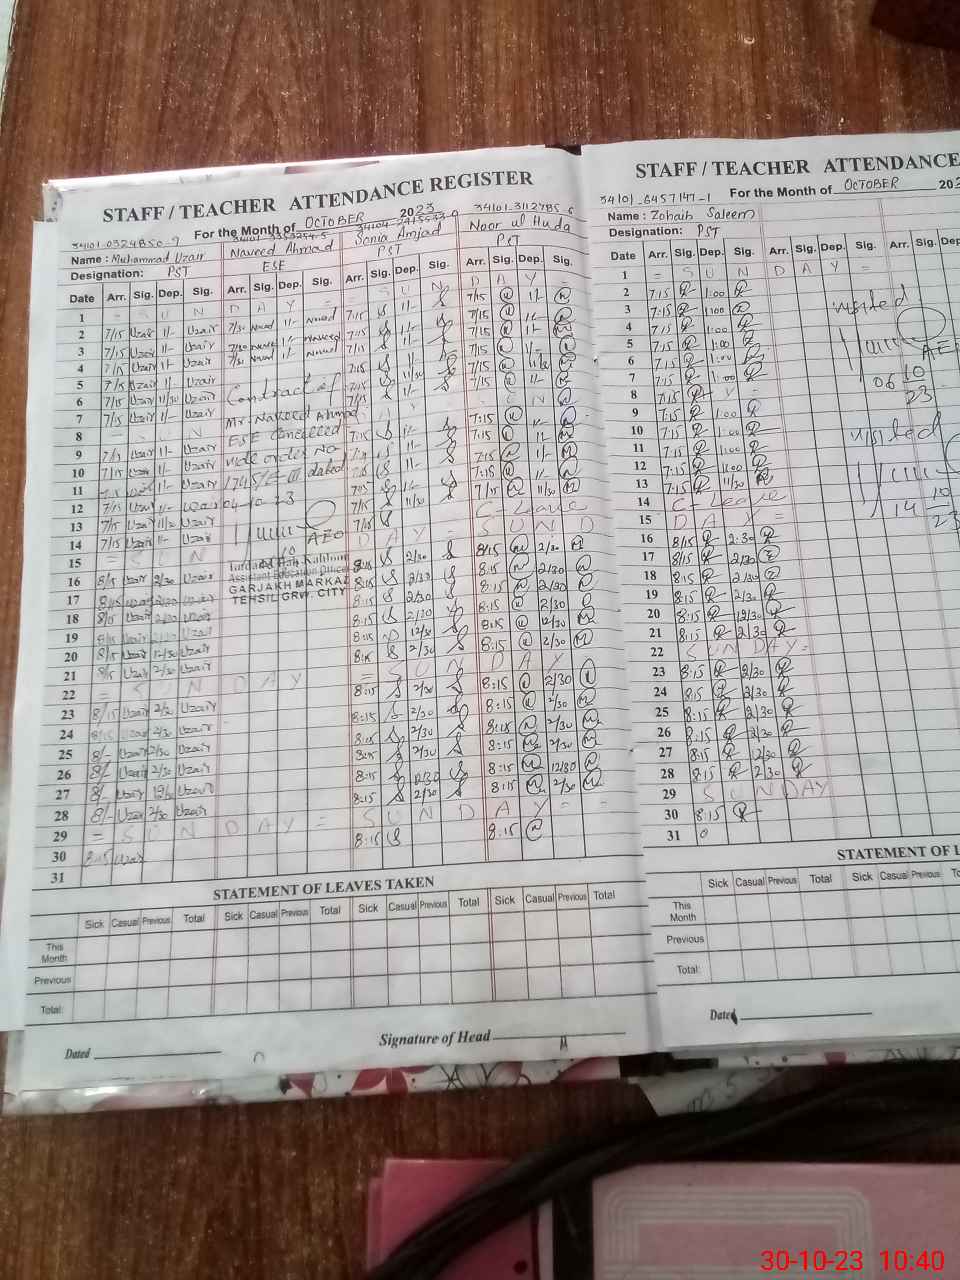 STAFF / TEACHER ATTENDANCE REGISTER
For the Month of OCTOBER 2023
34101-0324850-9
34101-3112785-6
Name : Muhammad Uzair Naveed Ahmad Sonia Amjad Noor ul Huda
Designation: PST ESE PST PST
Date Arr. Sig. Dep. Sig. Arr. Sig. Dep. Sig. Arr. Sig. Dep. Sig. Arr. Sig. Dep. Sig.
1 = S U N D A Y = = S U N D A Y =
2 7/15 Uzair 1/- Uzair 7/30 Naveed 1/- Naveed 7:15 1/- 7/15 1/-
3 7/15 Uzair 1/- Uzair 7/30 Naveed 1/- Naveed 7:15 1/- 7/15 1/-
4 7/15 Uzair 1/- Uzair 7/30 Naveed 1/- Naveed 7/15 1/- 7/15 1/-
5 7/15 Uzair 1/- Uzair 7:15 1/- 7/15 1/-
6 7/15 Uzair 11/30 Uzair 7:15 11/30 7/15
7 7/15 Uzair 1/- Uzair 7/15 7/15 1/-
Contract of
Mr. Naveed Ahmad
ESE Cancelled
vide order No
174/SE-III dated
04-10-23
AEO
Assistant Education Officer
GARJAKH MARKAZ
TEHSIL GRW. CITY
8 - S U N D A Y
9 7/15 Uzair 1/- Uzair 7:15 1/- 7:15 1/-
10 7/15 Uzair 1/- Uzair 7:15 1/- 7:15 1/-
11 7:15 Uzair 1/- Uzair 7:15 1/- 7:15 1/-
12 7/15 Uzair 1/- Uzair 7:15 1/- 7:15 1/-
13 7/15 Uzair 11/30 Uzair 7/15 11/30 7/15 11/30
14 7/15 Uzair 1/- Uzair 7/15 C-Leave
15 = S U N D A Y = S U N D
16 8/15 Uzair 2/30 Uzair 8:15 2/30 8/15 2/30
17 8/15 Uzair 2/30 Uzair 8:15 2/30 8:15 2/30
18 8/15 Uzair 2/30 Uzair 8:15 2/30 8:15 2/30
19 8/15 Uzair 2/30 Uzair 8:15 2/30 8:15 2/30
20 8/15 Uzair 12/30 Uzair 8:15 12/30 8:15 12/30
21 8/15 Uzair 2/30 Uzair 8:15 2/30 8:15 2/30
22 = S U N D A Y = S U N D A Y
23 8/15 Uzair 2/30 Uzair 8:15 2/30 8:15 2/30
24 8/15 Uzair 2/30 Uzair 8:15 2/30 8:15 2/30
25 8/- Uzair 2/30 Uzair 8:15 2/30 8:15 2/30
26 8/- Uzair 2/30 Uzair 8:15 2/30 8:15 2/30
27 8/- Uzair Uzair 8:15 12/30 8:15 12/30
28 8/- Uzair 2/30 Uzair 8:15 2/30 8:15 2/30
29 = S U N D A Y = S U N D A Y = =
30 8:15 Uzair 8:15 8:15
31
STATEMENT OF LEAVES TAKEN
Sick Casual Previous Total Sick Casual Previous Total Sick Casual Previous Total Sick Casual Previous Total
This Month
Previous
Total:
Dated
Signature of Head
STAFF / TEACHER ATTENDANCE
For the Month of OCTOBER 202
34101-6457147-1
Name : Zohaib Saleem
Designation: PST
Date Arr. Sig. Dep. Sig. Arr. Sig. Dep. Sig. Arr. Sig. Dep
1 = S U N D A Y =
2 7:15 1:00
3 7:15 1:00
4 7:15 1:00
5 7:15 1:00
6 7:15 1:00
7 7:15 1:00
visited
AE
06 10 23
8
9 7:15 1:00
10 7:15 1:00
11 7:15 1:00
12 7:15 1:00
13 7:15 11/30
visited
14 10 23
14 C-Leave
15 D A Y =
16 8/15 2:30
17 8/15 2/30
18 8:15 2/30
19 8:15 2/30
20 8:15 12/30
21 8:15 2/30
22 S U N D A Y =
23 8:15 2/30
24 8:15 2/30
25 8:15 2/30
26 8:15 2/30
27 8:15 12/30
28 8:15 2/30
29 S U N D A Y
30 8:15
31
STATEMENT OF L
Sick Casual Previous Total Sick Casual Previous To
This Month
Previous
Total:
Dated
30-10-23 10:40